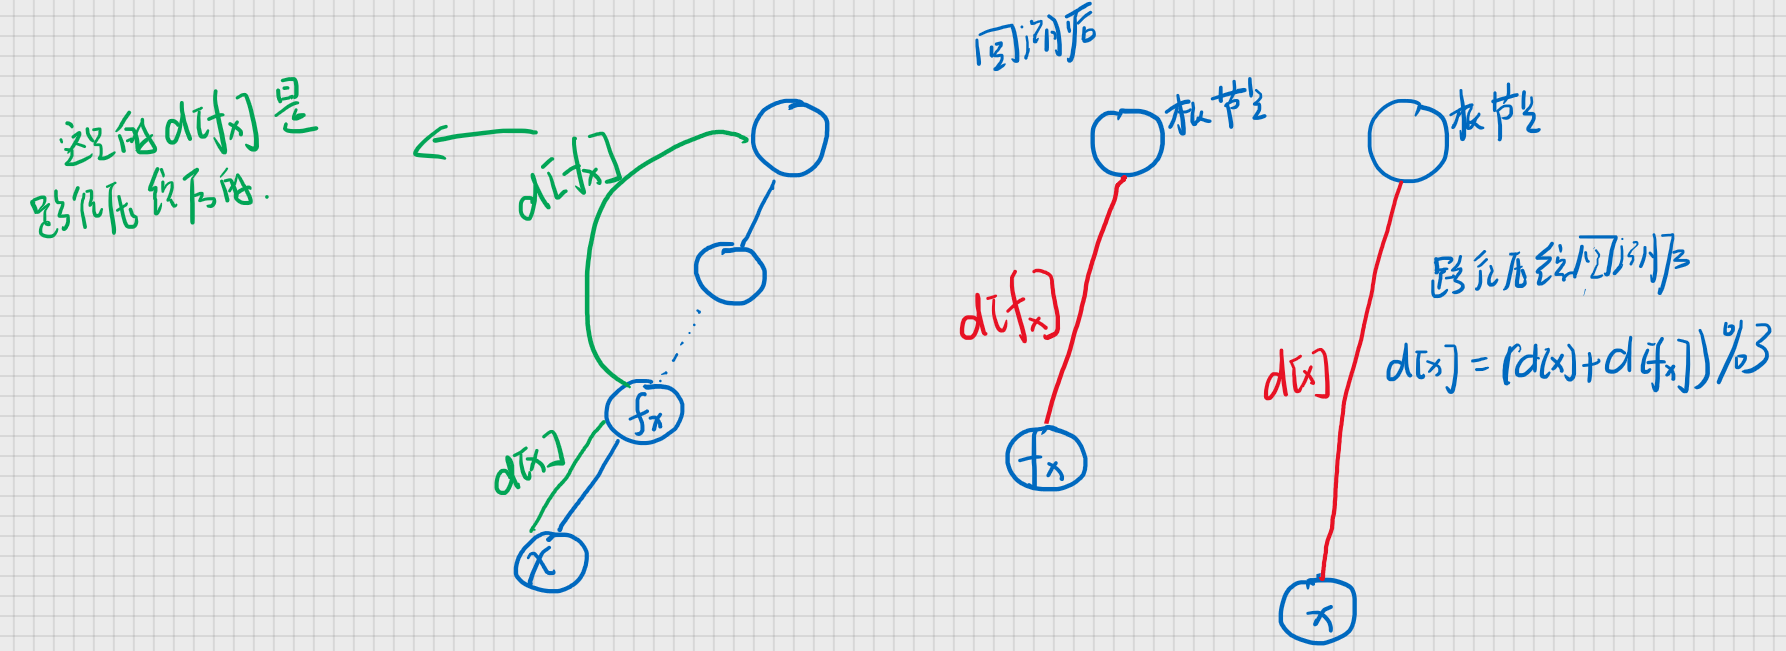 这里的d[fx]是
路径压缩后的.
d[fx]
fx
d[x]
x
回溯后
根节点
d[fx]
fx
根节点
d[x]
x
路径压缩回溯后
d[x] = (d[x]+d[fx])%3